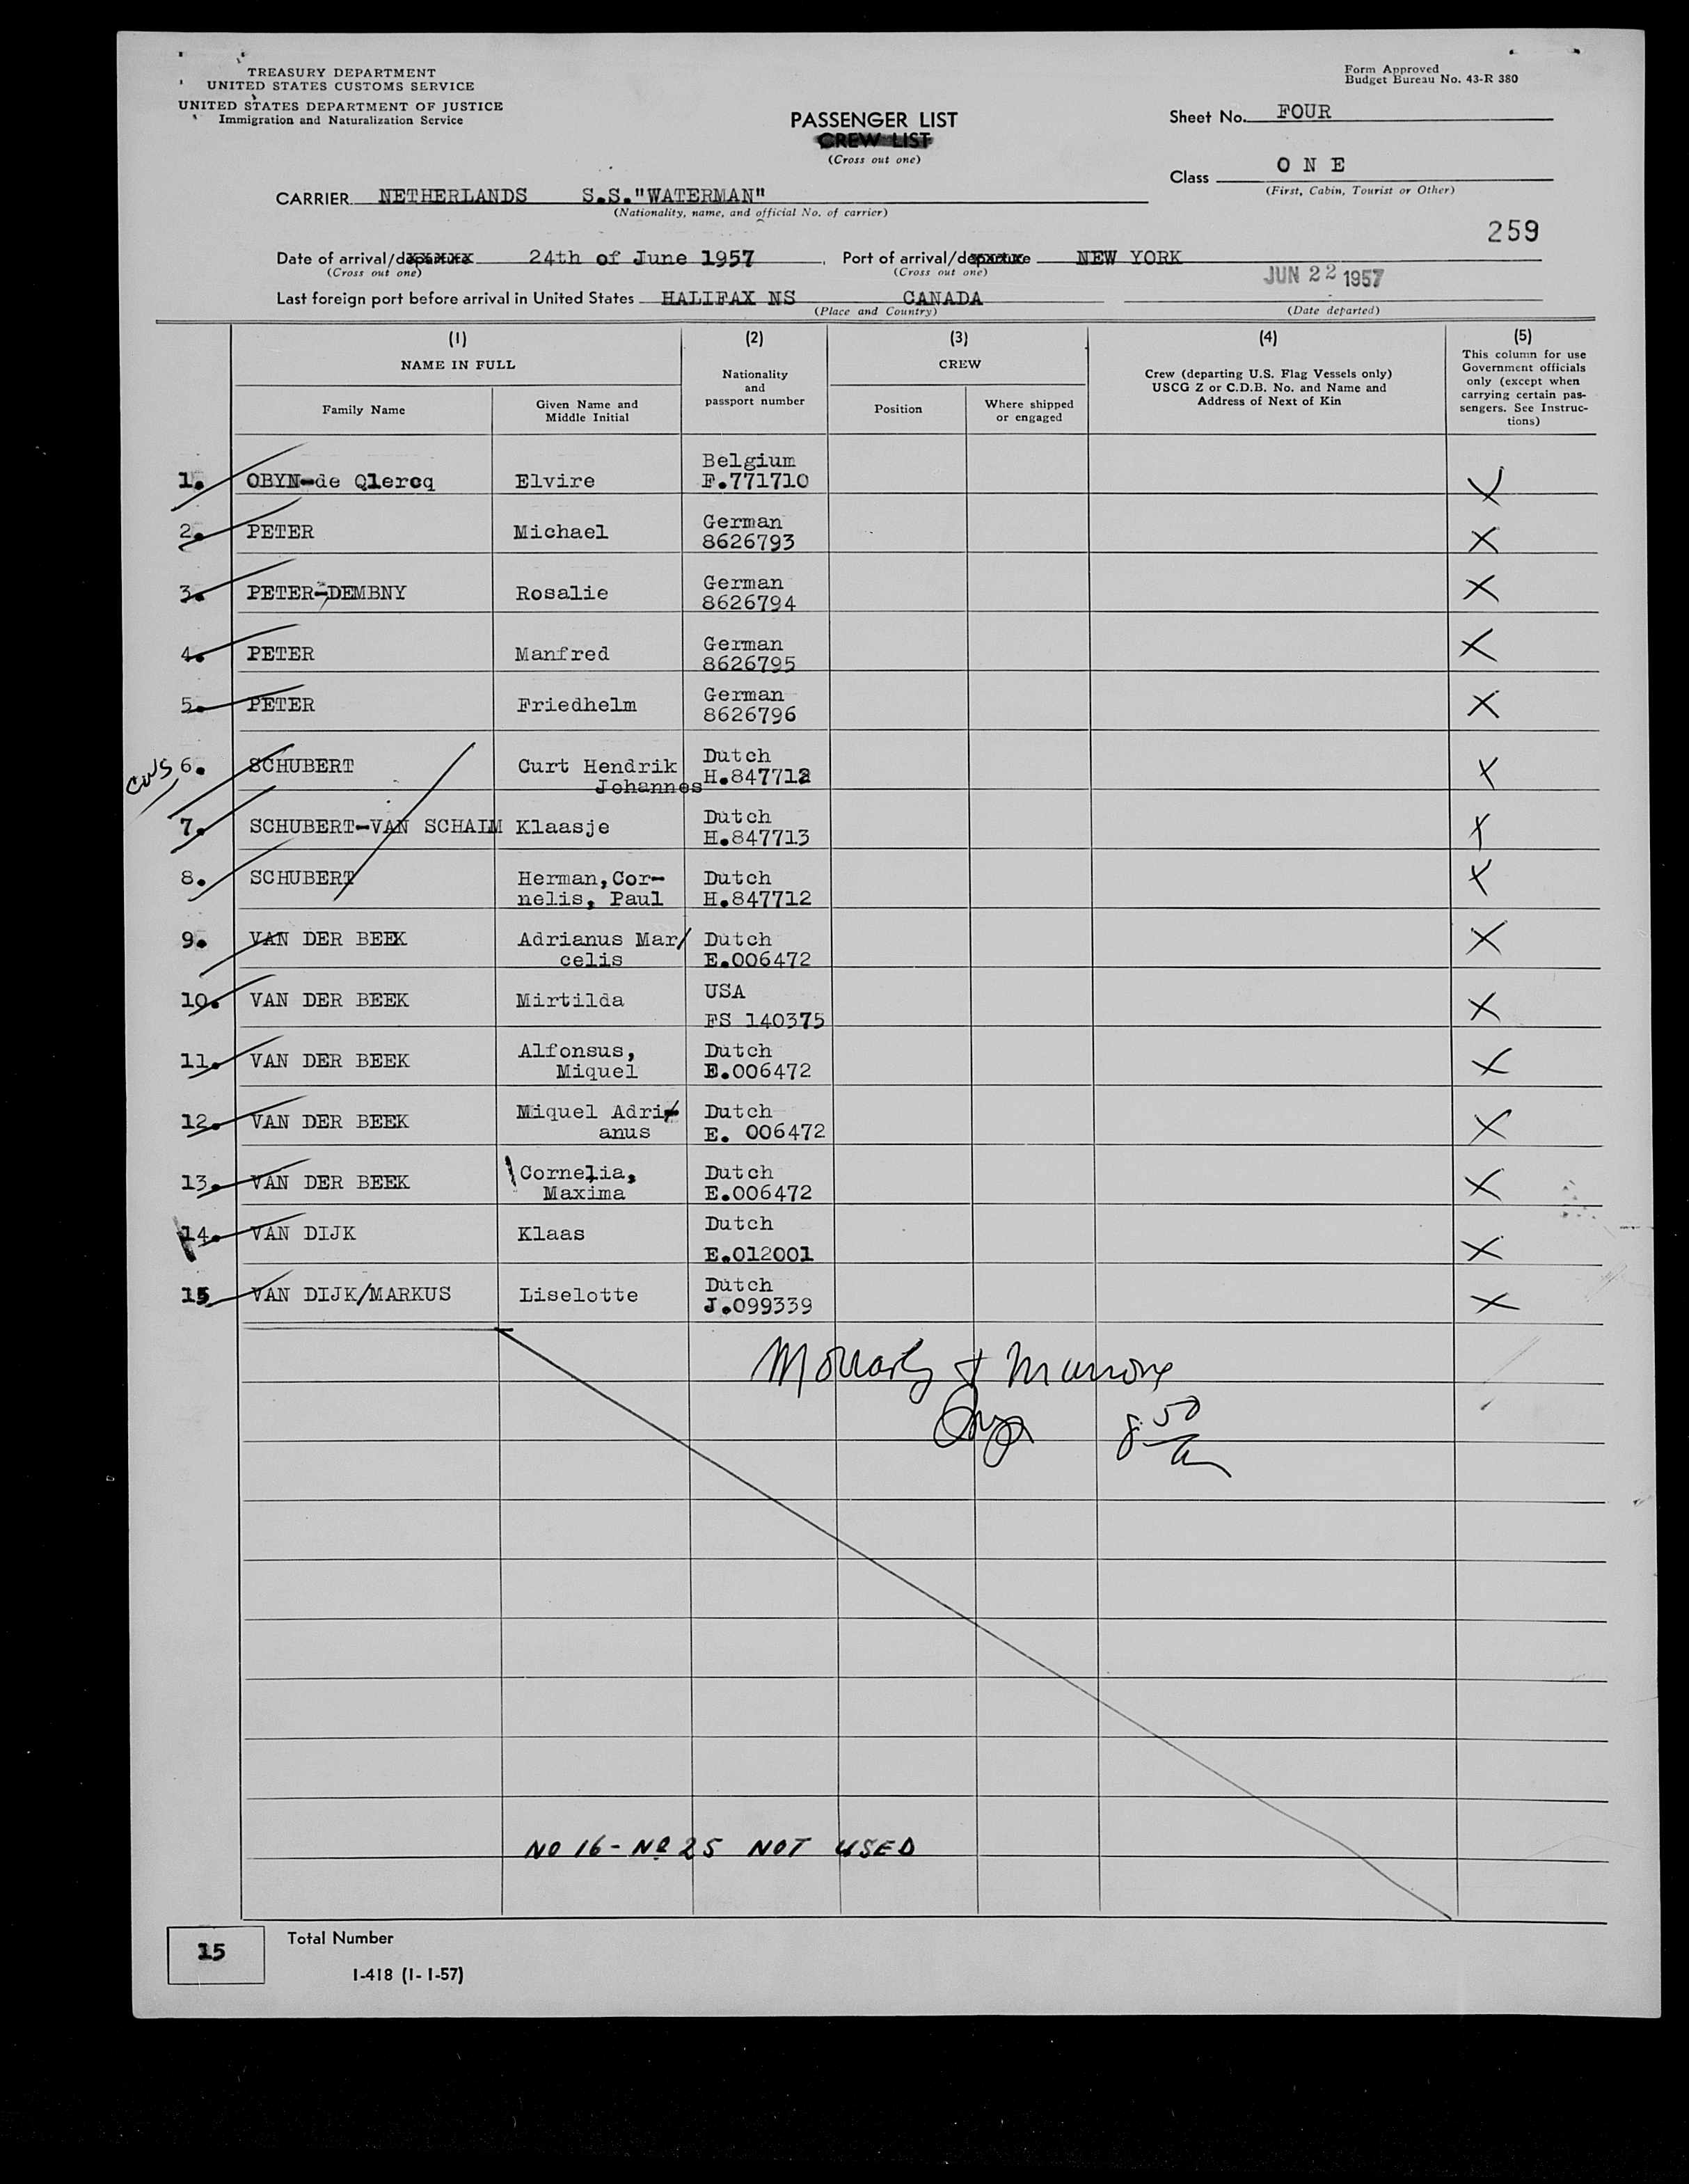 TREASURY DEPARTMENT
UNITED STATES CUSTOMS SERVICE
UNITED STATES DEPARTMENT OF JUSTICE
Immigration and Naturalization Service
Form Approved
Budget Bureau No. 43-R 380
PASSENGER LIST
CREW LIST
(Cross out one)
Sheet No. FOUR
Class O N E
(First, Cabin, Tourist or Other)
CARRIER NETHERLANDS S.S."WATERMAN"
(Nationality, name, and official No. of carrier)
259
Date of arrival/departure 24th of June 1957, Port of arrival/departure NEW YORK
(Cross out one) (Cross out one)
JUN 22 1957
Last foreign port before arrival in United States HALIFAX NS CANADA
(Place and Country) (Date departed)
(1) (2) (3) (4) (5)
NAME IN FULL
Family Name
Given Name and
Middle Initial
Nationality
and
passport number
CREW
Position
Where shipped
or engaged
Crew (departing U.S. Flag Vessels only)
USCG Z or C.D.B. No. and Name and
Address of Next of Kin
This column for use
Government officials
only (except when
carrying certain pas-
sengers. See Instruc-
tions)
Belgium
1. OBYN-de Qlercq Elvire F.771710
German
2. PETER Michael 8626793
German
3. PETER-DEMBNY Rosalie 8626794
German
4. PETER Manfred 8626795
German
5. PETER Friedhelm 8626796
Dutch
CWS 6. SCHUBERT Curt Hendrik H.847712
Johannes
Dutch
7. SCHUBERT-VAN SCHAIM Klaasje H.847713
8. SCHUBERT Herman,Cor- Dutch
nelis, Paul H.847712
9. VAN DER BEEK Adrianus Mar/ Dutch
celis E.006472
10. VAN DER BEEK Mirtilda USA
FS 140375
11. VAN DER BEEK Alfonsus, Dutch
Miquel E.006472
12. VAN DER BEEK Miquel Adri- Dutch
anus E. 006472
13. VAN DER BEEK Cornelia, Dutch
Maxima E.006472
14. VAN DIJK Klaas Dutch
E.012001
Dutch
15 VAN DIJK/MARKUS Liselotte J.099339
8 50
NO 16 - No 25 NOT USED
15
Total Number
I-418 (1-1-57)